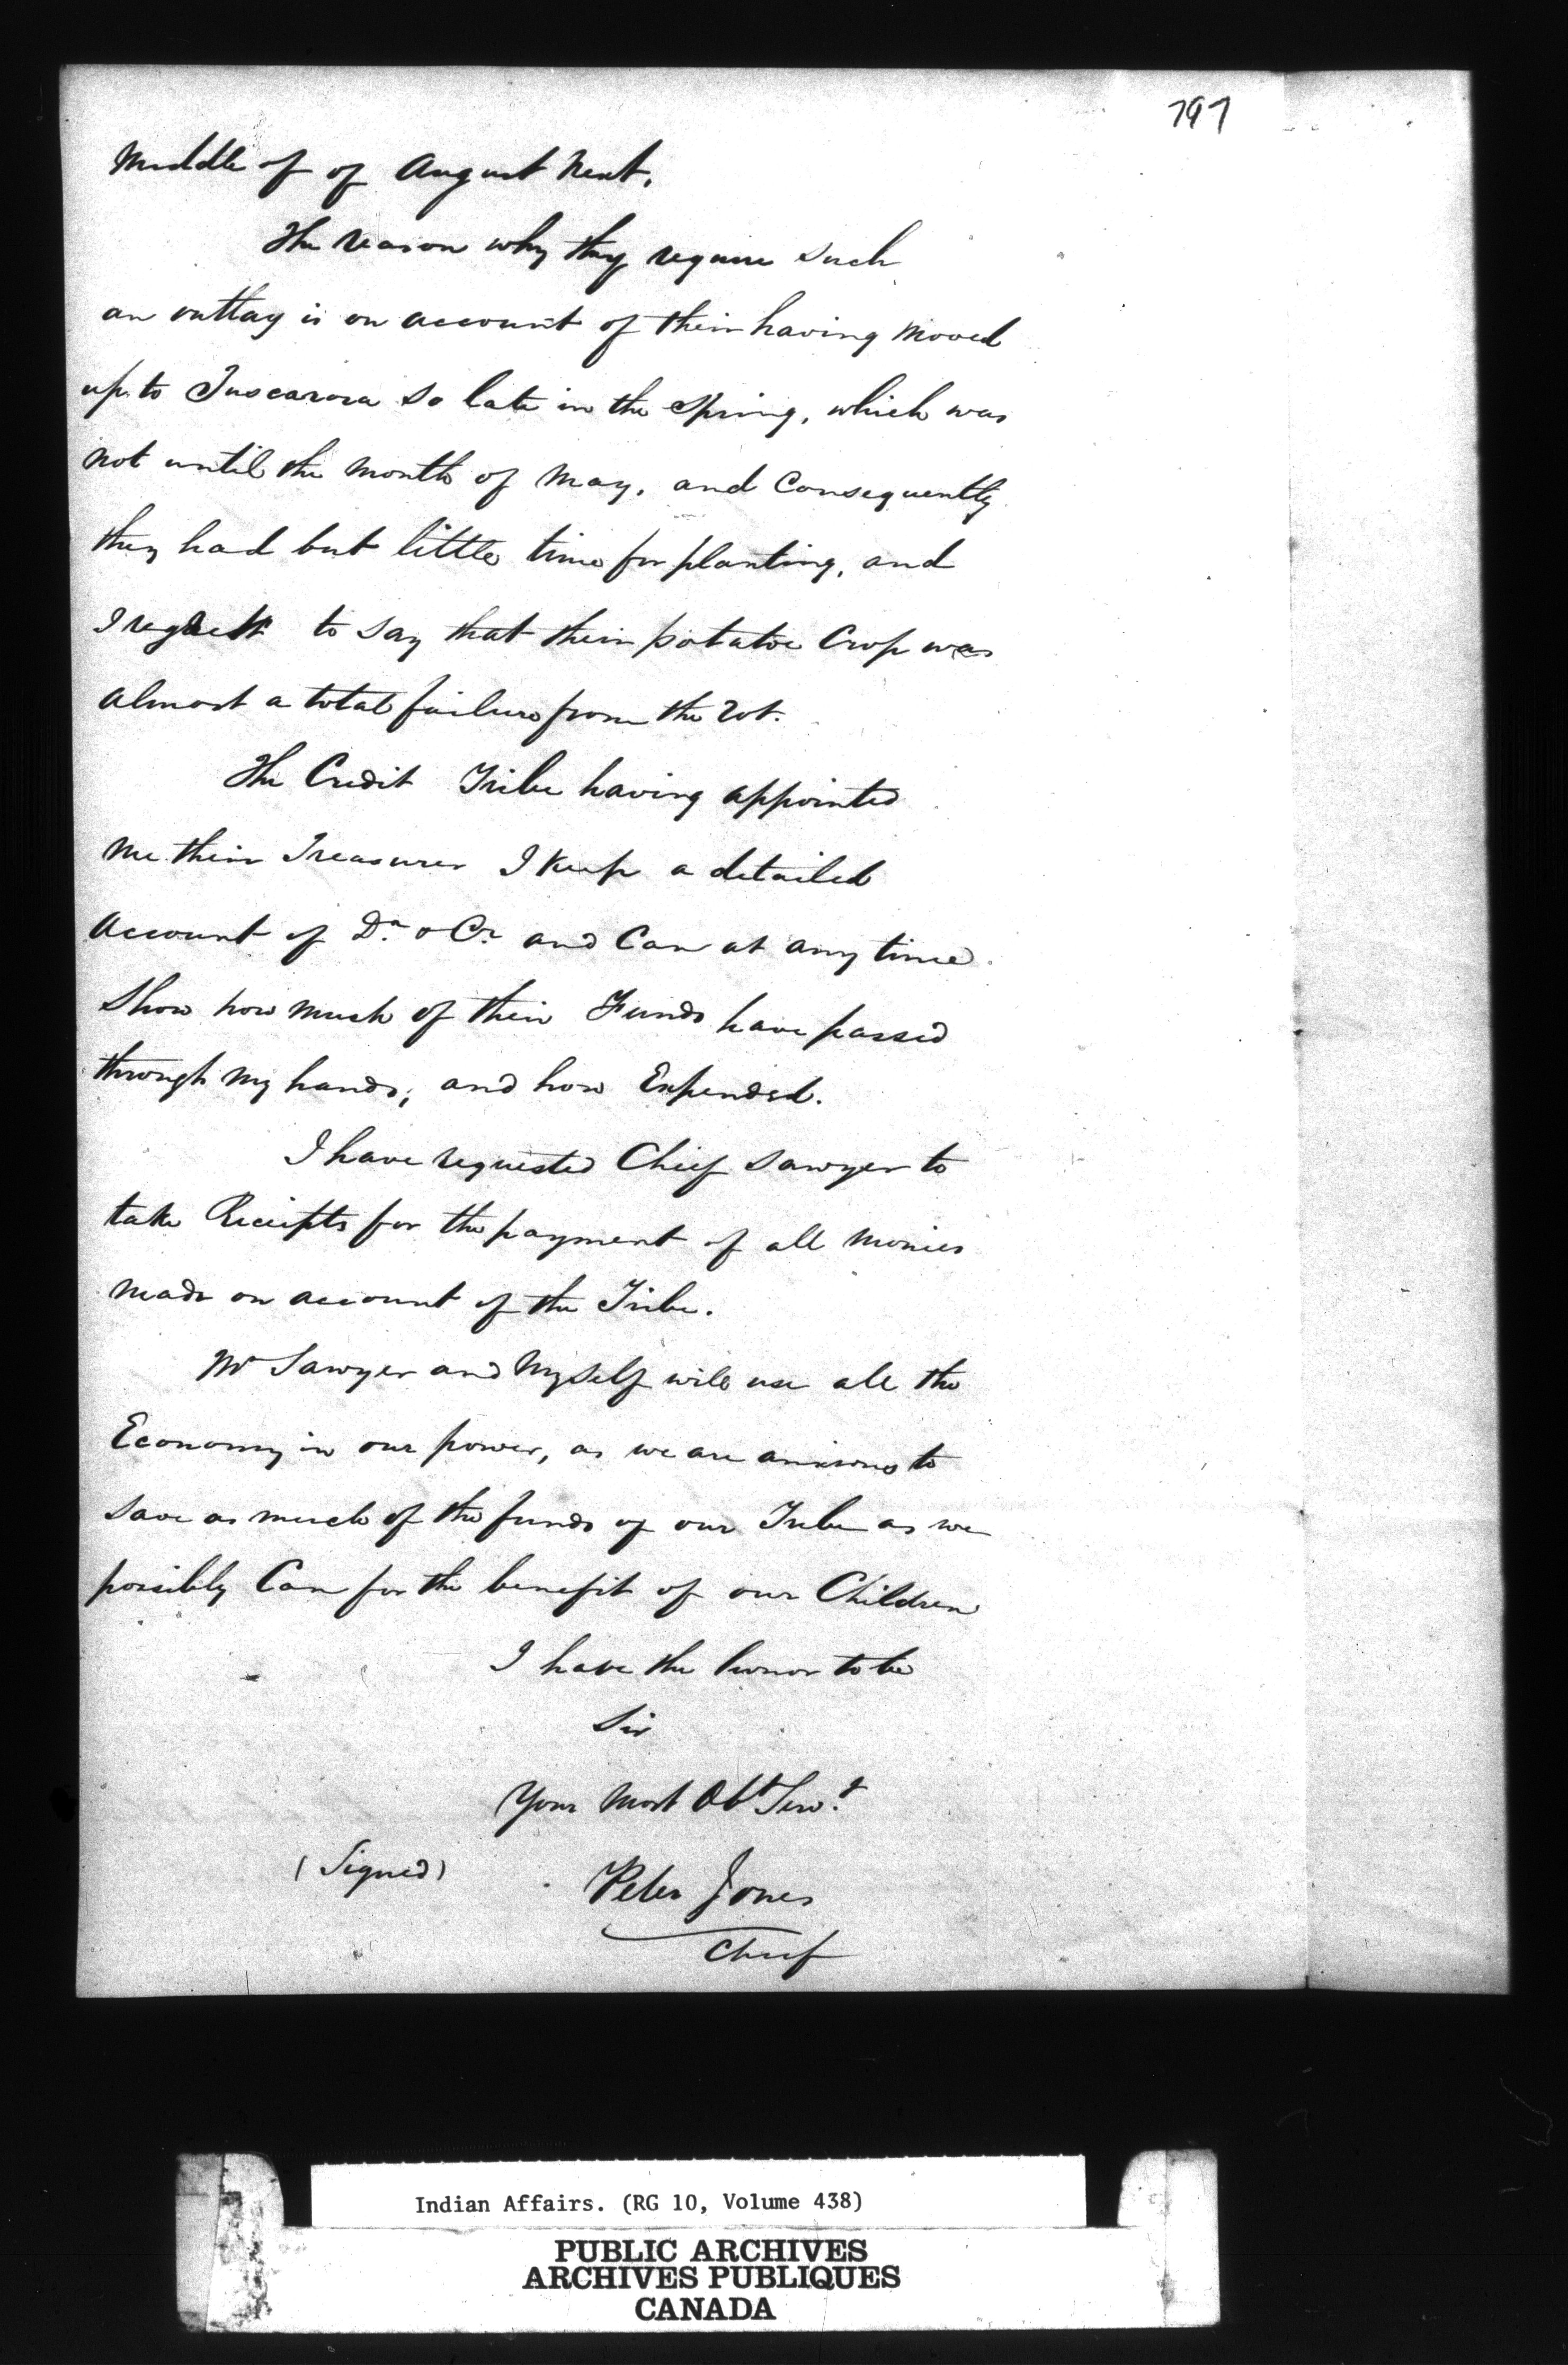 797
Middle of of August Next.
The reason why they require such
an outlay is on account of their having moved
up to Tuscarora so late in the Spring, which was
not until the Month of May, and Consequently
they had but little time for planting, and
I regrett to say that their potatoe Crop was
almost a total failure from the rot.
The Credit Tribe having appointed
me their Treasurer I keep a detailed
account of Dr. & Cr. and Can at any time
Show how much of their Funds have passed
through my hands, and how Expended.
I have requested Chief Sawyer to
take Receipts for the payment of all Monies
made on account of the Tribe.
Mr Sawyer and Myself will use all the
Economy in our power, as we are anxious to
save as much of the funds of our Tribe as we
possibly Can for the benefit of our Children
I have the honor to be
Sir
Your Most Obt Servt
(Signed) Peter Jones
Chief
Indian Affairs. (RG 10, Volume 438)
PUBLIC ARCHIVES
ARCHIVES PUBLIQUES
CANADA